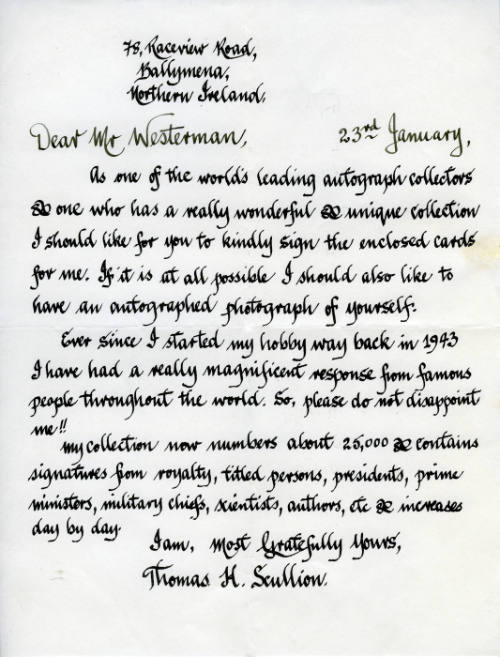 78, Raceview Road,
Ballymena,
Northern Ireland.
Dear Mr Westerman, 23rd January,
As one of the world's leading autograph collectors
& one who has a really wonderful & unique collection
I should like for you to kindly sign the enclosed cards
for me. If it is at all possible I should also like to
have an autographed photograph of yourself.
Ever since I started my hobby way back in 1943
I have had a really magnificent response from famous
people throughout the world. So, please do not disappoint
me!!
My collection now numbers about 25,000 & contains
signatures from royalty, titled persons, presidents, prime
ministers, military chiefs, scientists, authors, etc & increases
day by day.
I am, Most Gratefully Yours,
Thomas H. Scullion.